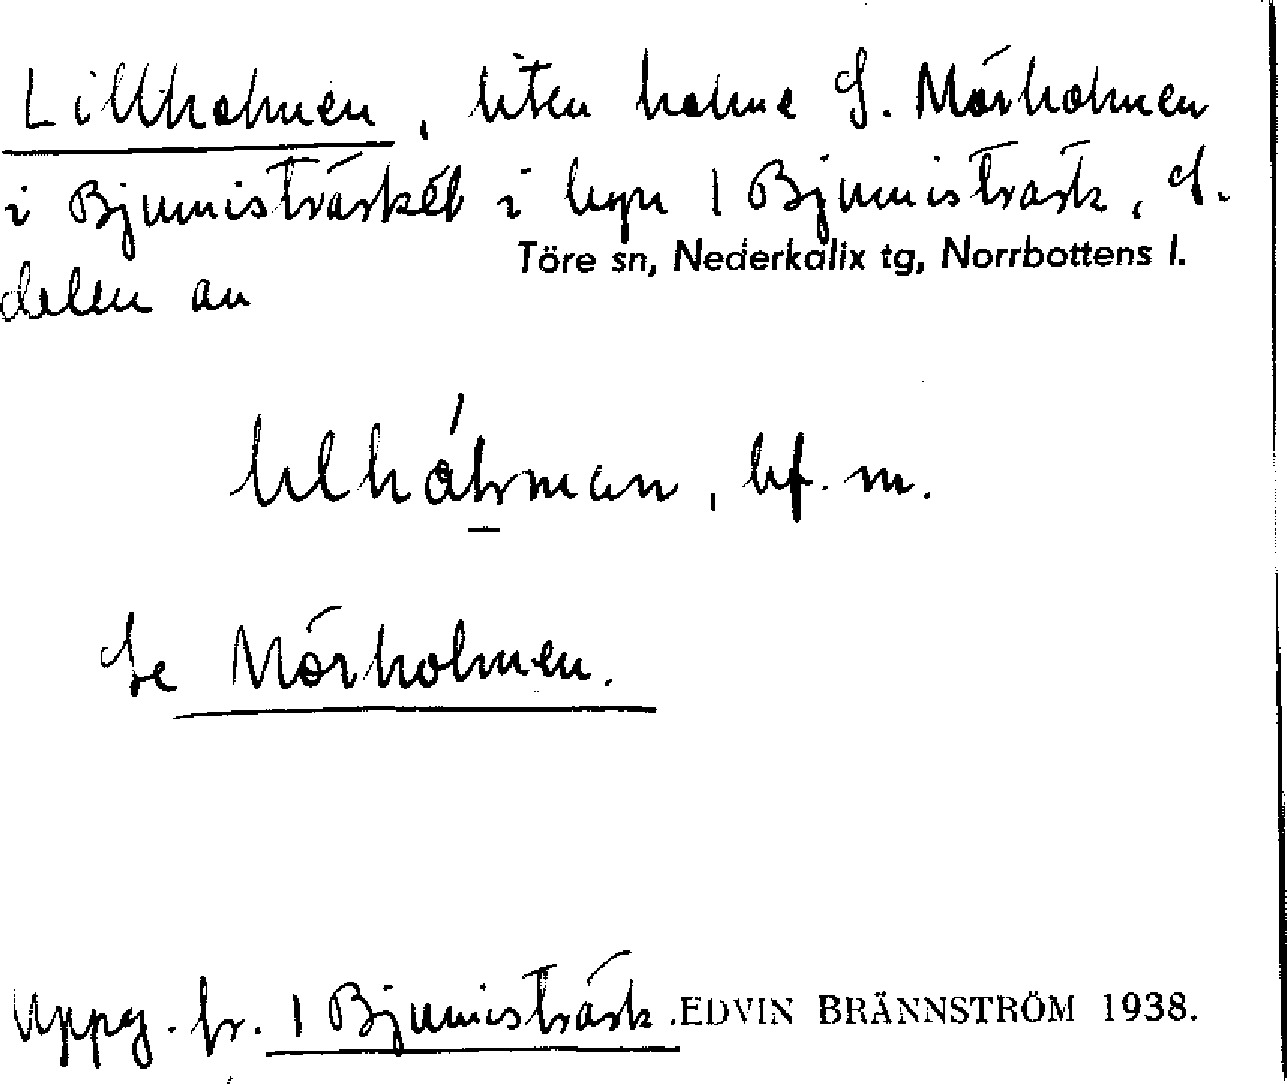 Lillholmen, liten holme S. Mörholmen
i Bjumisträsket i byn 1 Bjumisträsk, S.
Töre sn, Nederkalix tg, Norrbottens l.
delen av
bf. m.
Se Mörholmen.
Uppg. fr. 1 Bjumisträsk. EDVIN BRÄNNSTRÖM 1938.